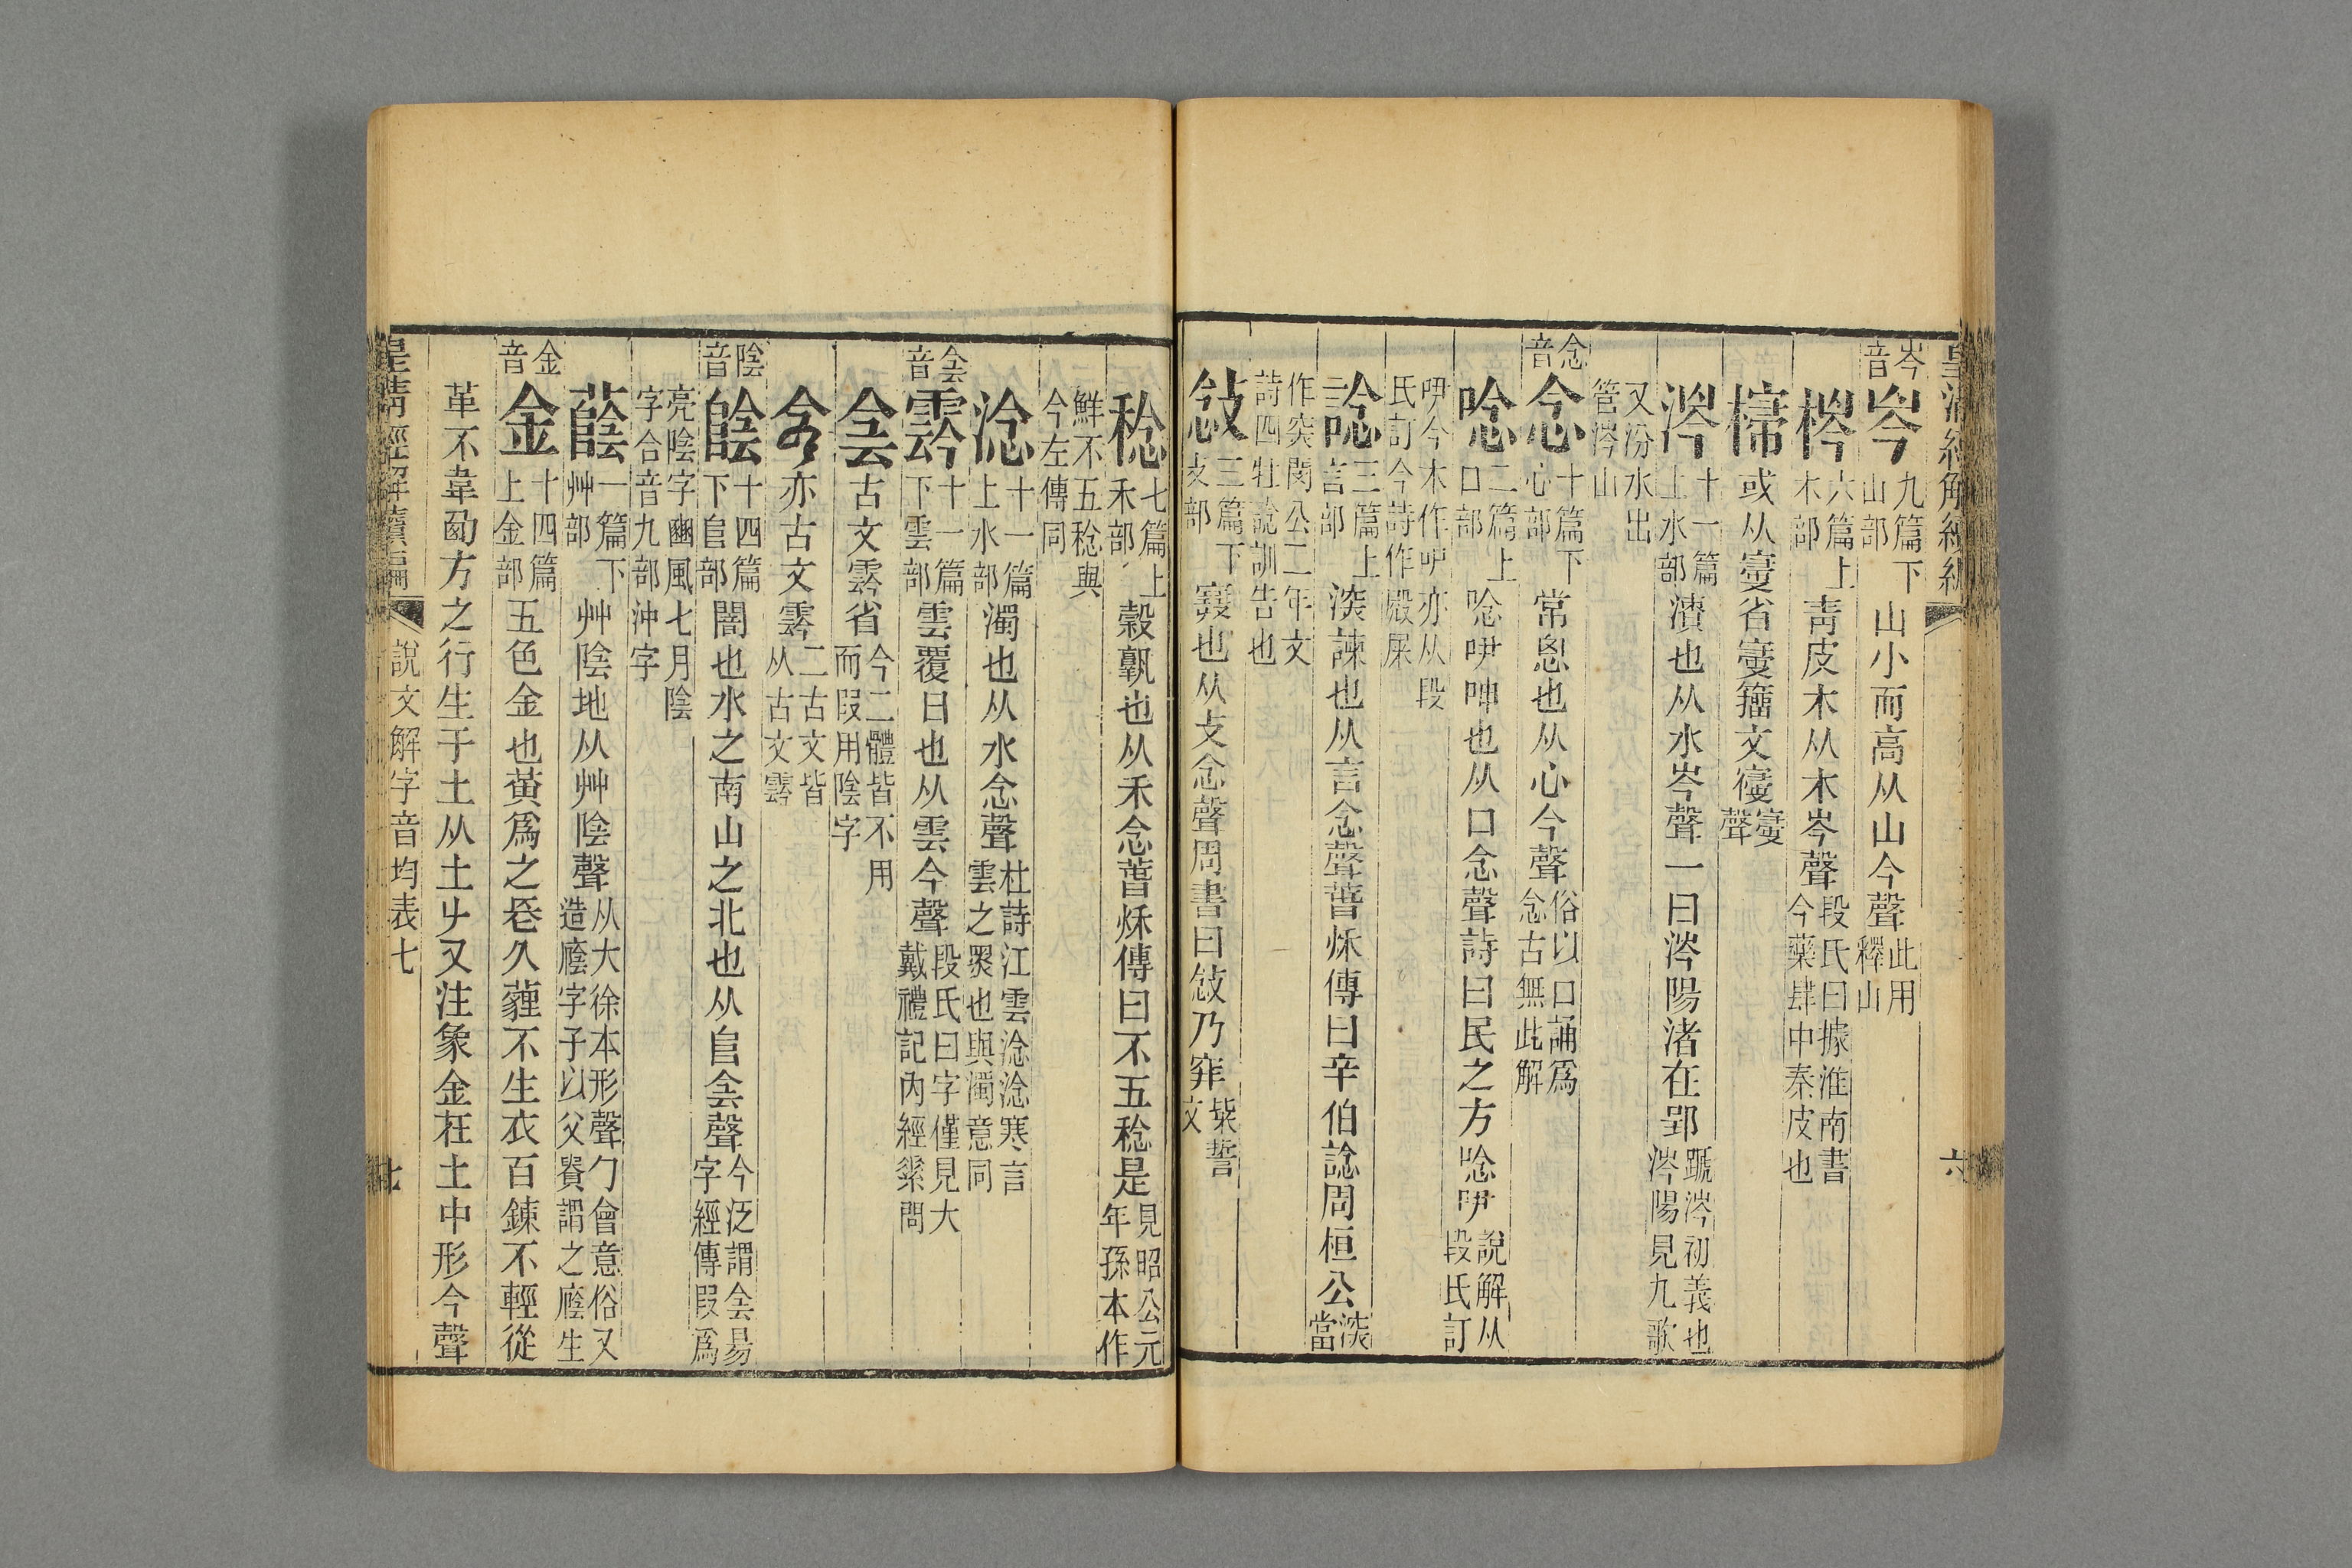 皇清經解續編
六
岑音
岑九篇下山部山小而高从山今聲此用釋山
梣六篇上木部靑皮木从木岑聲段氏曰據淮南書今藥肆中秦皮也
或从省籒文聲
涔十一篇上水部漬也从水岑聲一曰涔陽渚在郢䠊涔初義也涔陽見九歌
又汾水出管涔山
念音
念十篇下心部常恖也从心今聲俗以口誦爲念古無此解
唸二篇上口部唸㕧呻也从口念聲詩曰民之方唸㕧說解从段氏訂
㕧今木作吚亦从段氏訂今詩作殿屎
諗三篇上言部深諫也从言念聲萅秌傳曰辛伯諗周桓公深當
作突閔公二年文詩四牡說訓告也
敜三篇下攴部也从攴念聲周書曰敜乃穽粊誓文
稔七篇上禾部穀孰也从禾念聲萅秌傳曰不五稔是見昭公元年孫本作
鮮不五稔與今左傳同
淰十一篇上水部濁也从水念聲杜詩江雲淰淰寒言雲之眾也與濁意同
侌音
霒十一篇下雲部雲覆日也从雲今聲段氏曰字僅見大戴禮記內經素問
侌古文霒省今二體皆不用而叚用陰字
亦古文霒二古文皆从古文霒
陰音
陰十四篇下𨸏部闇也水之南山之北也从𨸏侌聲今泛謂侌昜字經傳叚爲
亮陰字豳風七月陰字合音九部沖字
蔭一篇下艸部艸陰地从艸陰聲从大徐本形聲勹會意俗又造廕字子以父貴謂之廕生
金音
金十四篇上金部五色金也黃爲之長久薶不生衣百鍊不輕從
革不韋西方之行生于土从土ナ又注象金在土中形今聲
皇淸經解續編
說文解字音均表七
七